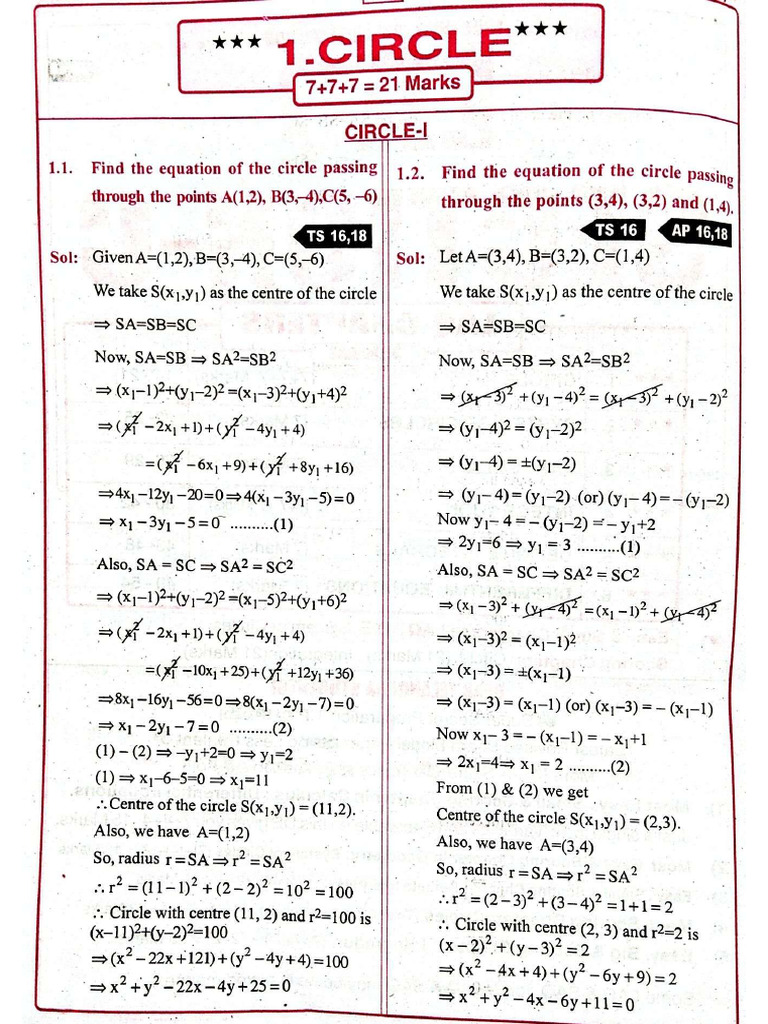 ★★★ 1.CIRCLE ★★★
7+7+7 = 21 Marks
CIRCLE-I
1.1. Find the equation of the circle passing
through the points A(1,2), B(3,–4),C(5, –6)
TS 16,18
Sol: Given A=(1,2), B=(3,–4), C=(5,–6)
We take S(x₁,y₁) as the centre of the circle
⇒ SA=SB=SC
Now, SA=SB ⇒ SA²=SB²
⇒ (x₁–1)²+(y₁–2)² =(x₁–3)²+(y₁+4)²
⇒ (x₁² – 2x₁ +1) + (y₁² – 4y₁ + 4)
= (x₁² – 6x₁ +9) + (y₁² + 8y₁ +16)
⇒4x₁–12y₁–20=0⇒4(x₁–3y₁–5)=0
⇒ x₁ –3y₁ –5=0 ..........(1)
Also, SA = SC ⇒ SA² = SC²
⇒ (x₁–1)²+(y₁–2)² =(x₁–5)²+(y₁+6)²
⇒ (x₁² – 2x₁ +1) + (y₁² – 4y₁ + 4)
=(x₁² –10x₁ +25)+(y₁² +12y₁ +36)
⇒8x₁–16y₁–56=0⇒8(x₁–2y₁–7)=0
⇒ x₁ –2y₁ –7=0 ..........(2)
(1) – (2) ⇒ –y₁+2=0 ⇒ y₁=2
(1) ⇒ x₁–6–5=0⇒x₁=11
∴Centre of the circle S(x₁,y₁) = (11,2).
Also, we have A=(1,2)
So, radius r=SA ⇒ r² =SA²
∴ r² = (11–1)² + (2–2)² =10² =100
∴ Circle with centre (11, 2) and r²=100 is
(x–11)²+(y–2)²=100
⇒(x² –22x+121)+(y² –4y+4)=100
⇒ x² + y² –22x –4y+25=0
1.2. Find the equation of the circle passing
through the points (3,4), (3,2) and (1,4).
TS 16 AP 16,18
Sol: Let A=(3,4), B=(3,2), C=(1,4)
We take S(x₁,y₁) as the centre of the circle
⇒ SA=SB=SC
Now, SA=SB ⇒ SA²=SB²
⇒ (x₁–3)² +(y₁ –4)² = (x₁–3)² +(y₁ –2)²
⇒ (y₁–4)² = (y₁–2)²
⇒ (y₁–4) = ±(y₁–2)
⇒ (y₁– 4) = (y₁–2) (or) (y₁– 4)= – (y₁–2)
Now y₁– 4 = – (y₁–2) = – y₁+2
⇒ 2y₁=6 ⇒ y₁ = 3 ..........(1)
Also, SA = SC ⇒ SA² = SC²
⇒ (x₁ –3)² + (y₁–4)² = (x₁ –1)² + (y₁–4)²
⇒ (x₁–3)² = (x₁–1)²
⇒ (x₁–3) = ±(x₁–1)
⇒ (x₁–3) = (x₁–1) (or) (x₁–3) = – (x₁–1)
Now x₁– 3 = – (x₁–1) = – x₁+1
⇒ 2x₁=4⇒ x₁ = 2 ..........(2)
From (1) & (2) we get
Centre of the circle S(x₁,y₁) = (2,3).
Also, we have A=(3,4)
So, radius r=SA ⇒ r² =SA²
∴r² = (2–3)² + (3–4)² =1+1=2
∴ Circle with centre (2, 3) and r²=2 is
(x–2)² + (y–3)² =2
⇒ (x² –4x+4) + (y² –6y+9) =2
⇒ x² + y² –4x –6y+11=0